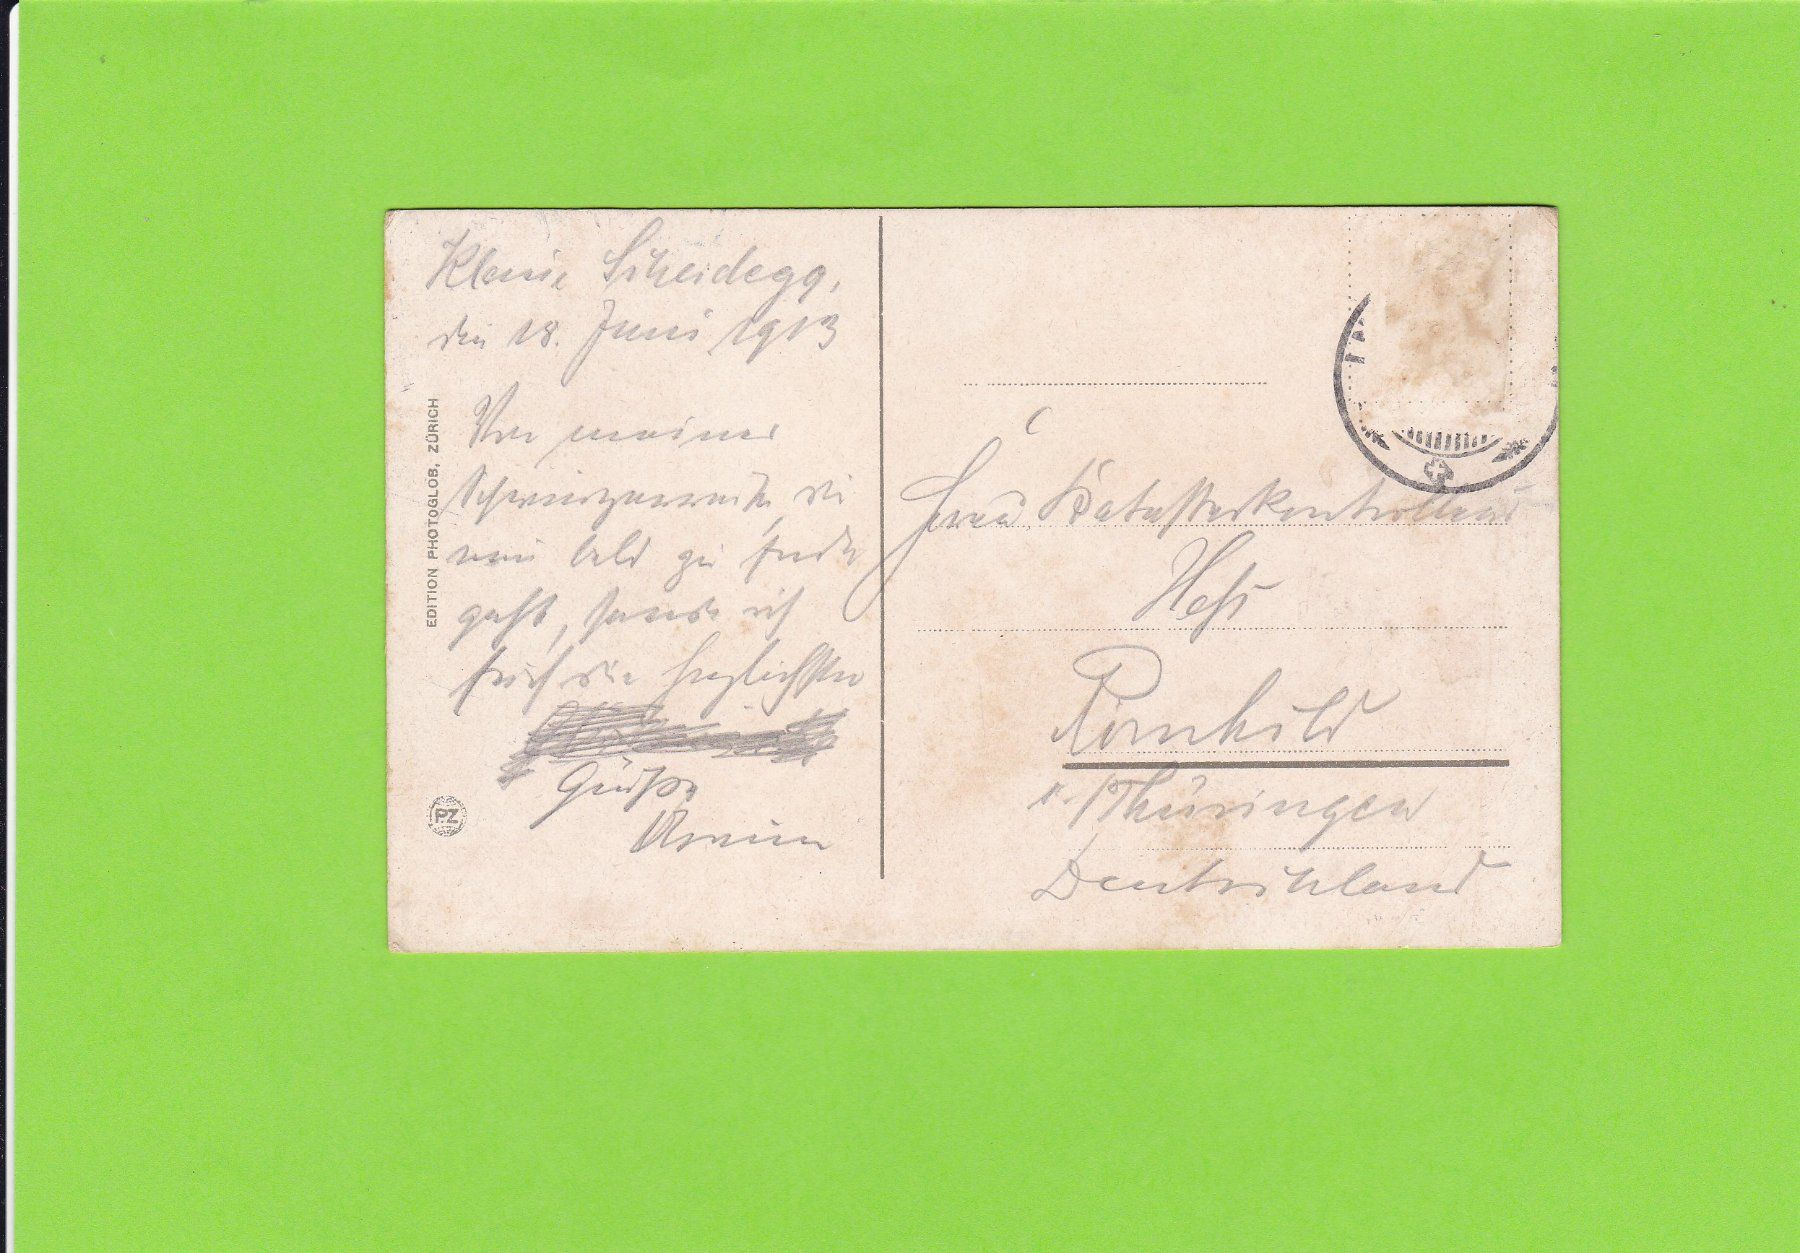 Kleine Scheidegg,
den 18. Juni 1913
Von meiner
Schweizerreise, die
nun bald zu Ende
geht, sende ich
Euch die herzlichsten
Grüße
EDITION PHOTOGLOB, ZÜRICH
PZ
Frau Katasterkontrolleur
Heß
Römhild
i. Thüringen
Deutschland